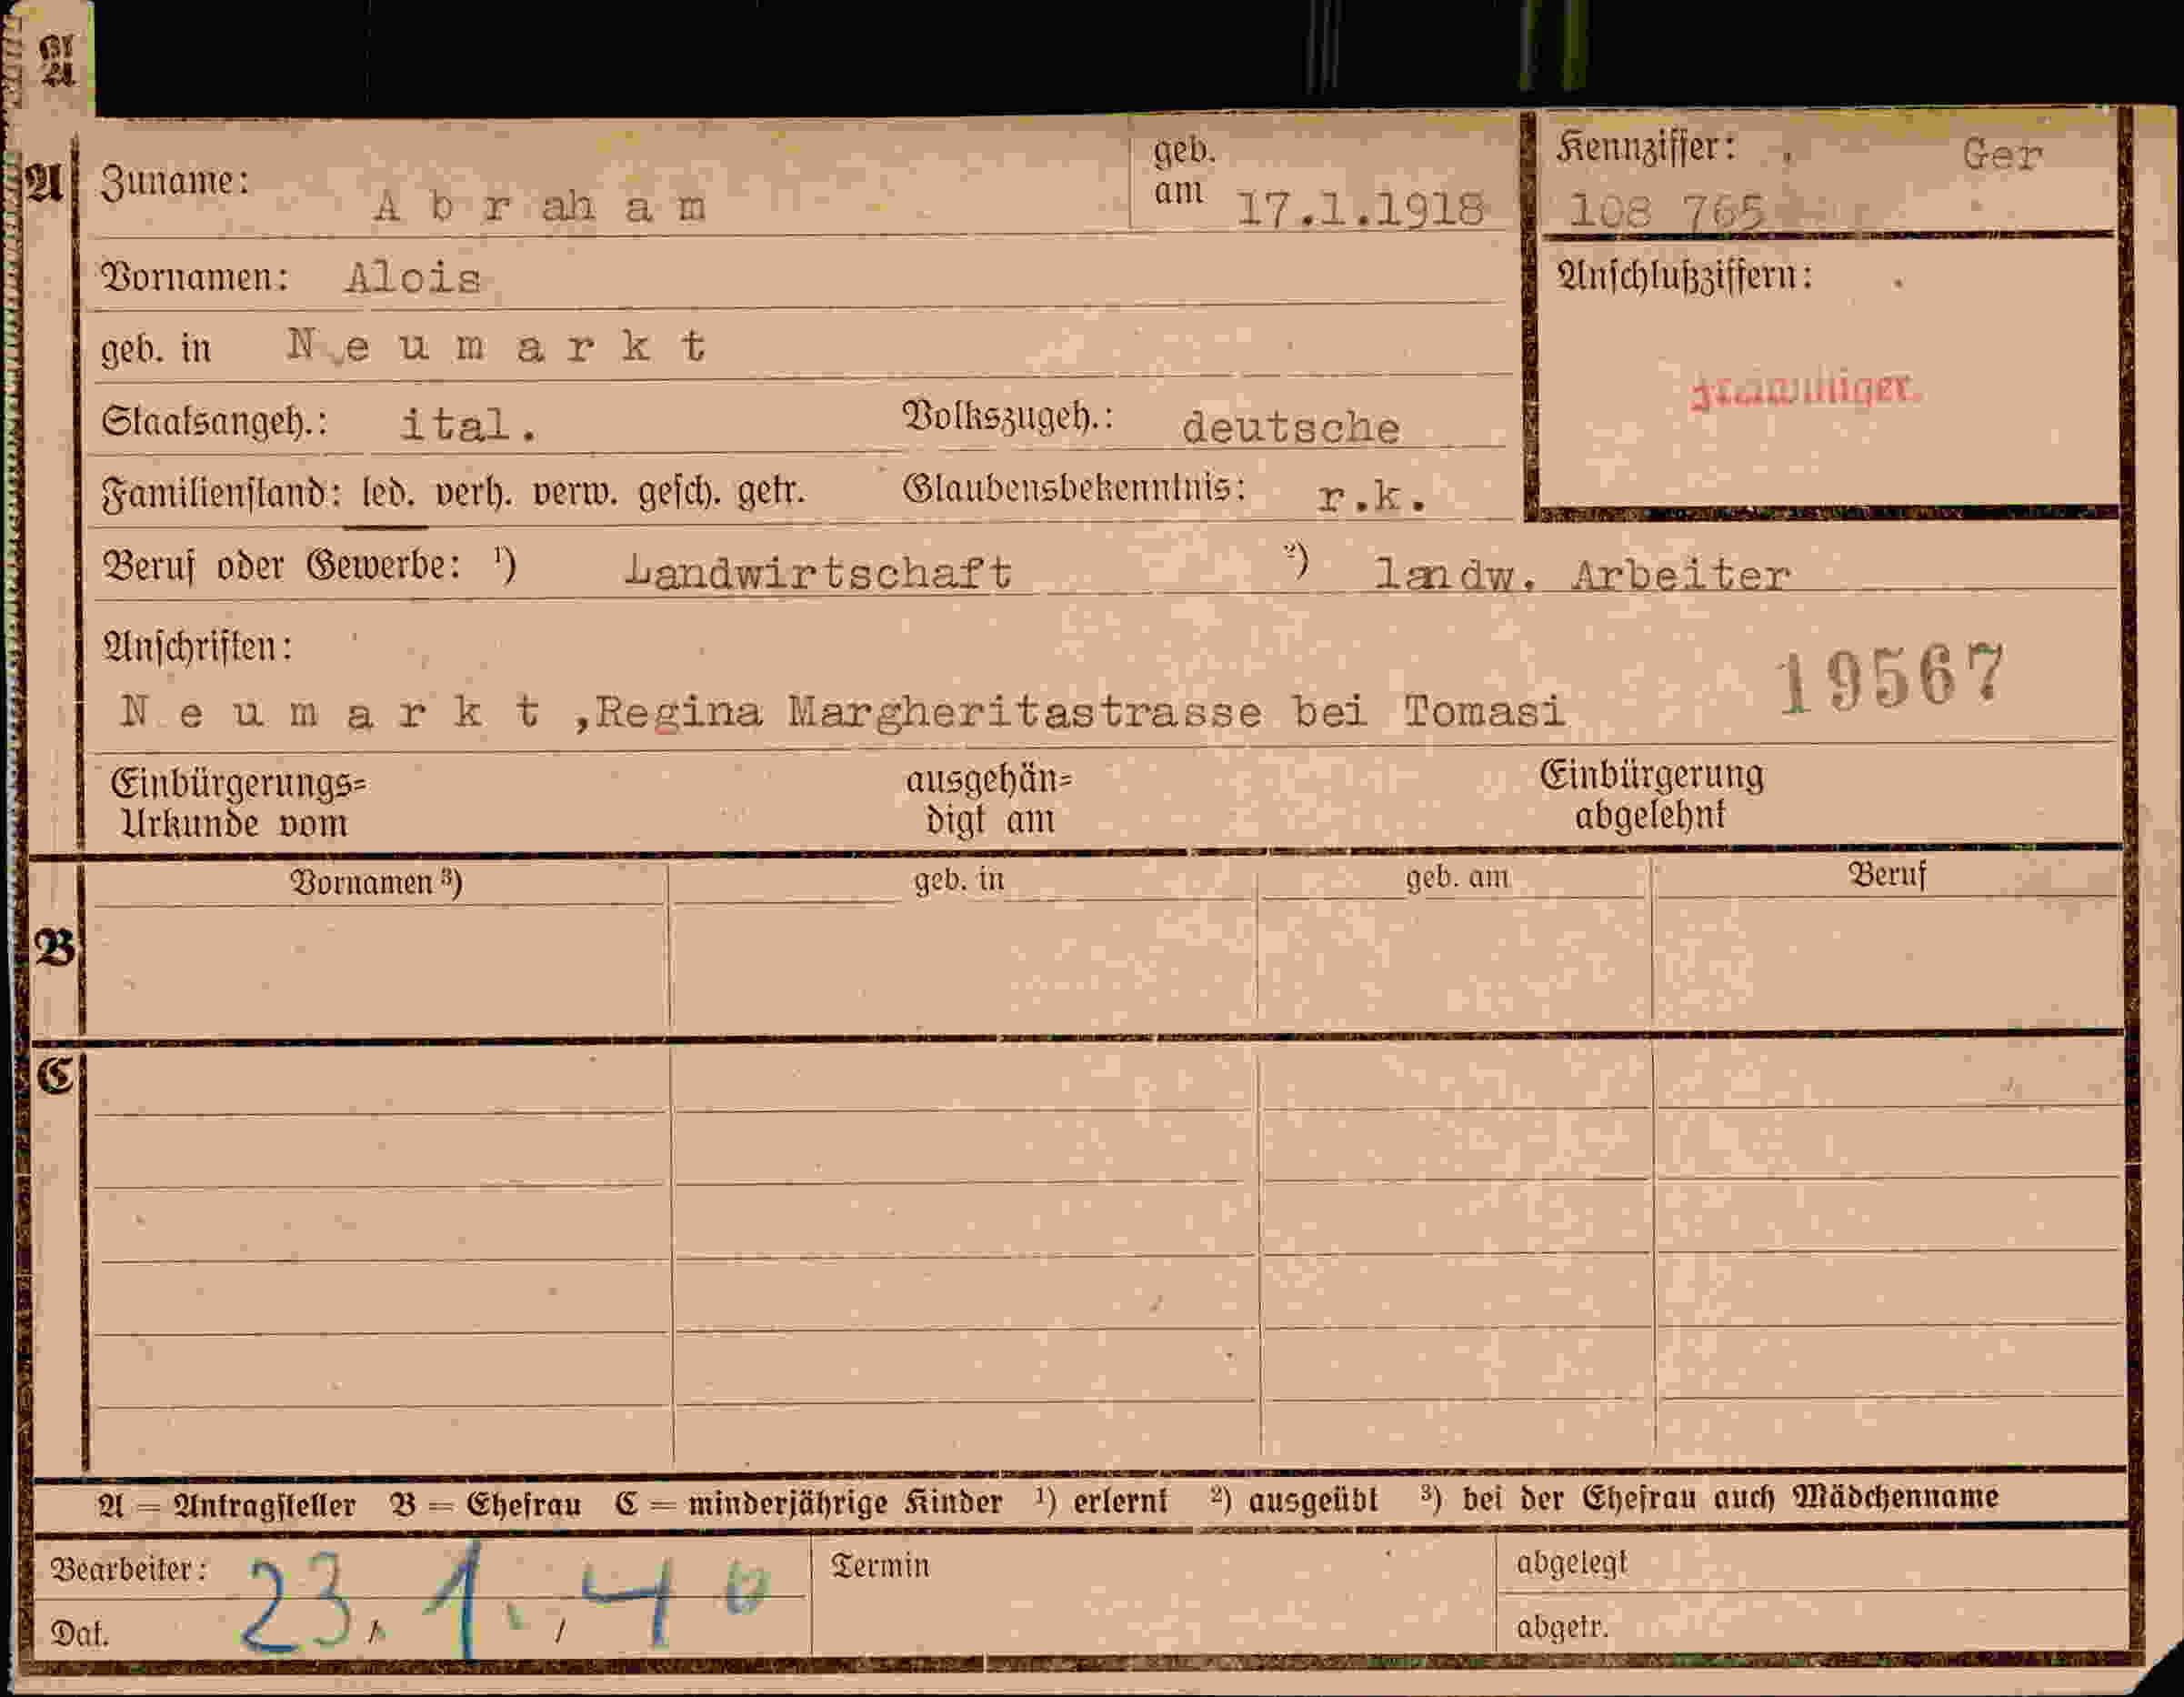 A
A Zuname: Abraham geb. am 17.1.1918 Kennziffer: Ger
108 765
Vornamen: Alois Anschlußziffern:
geb. in Neumarkt
Staatsangeh.: ital. Volkszugeh.: deutsche
Familienstand: led. verh. verw. gesch. getr. Glaubensbekenntnis: r.k.
Beruf oder Gewerbe: 1) Landwirtschaft 2) landw. Arbeiter
Anschriften: 19567
Neumarkt, Regina Margheritastrasse bei Tomasi
Einbürgerungs= ausgehän= Einbürgerung
Urkunde vom digt am abgelehnt
Vornamen 3) geb. in geb. am Beruf
B
C
A = Antragsteller B = Ehefrau C = minderjährige Kinder 1) erlernt 2) ausgeübt 3) bei der Ehefrau auch Mädchenname
Bearbeiter: 23.1.40 Termin abgelegt
Dat. abgetr.